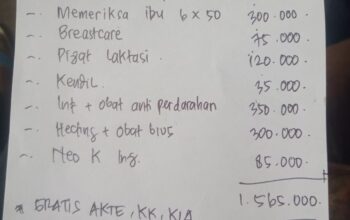 -. Memeriksa ibu 6 x 50 300.000.
-. Breastcare 75.000.
-. Pijat Laktasi. 120.000.
-. Kendil 35.000.
-. Inf + obat anti perdarahan 350.000.
-. Hecting + obat bius 300.000.
-. Neo K Inj. 85.000.
1.565.000.
* GRATIS AKTE, KK, KIA